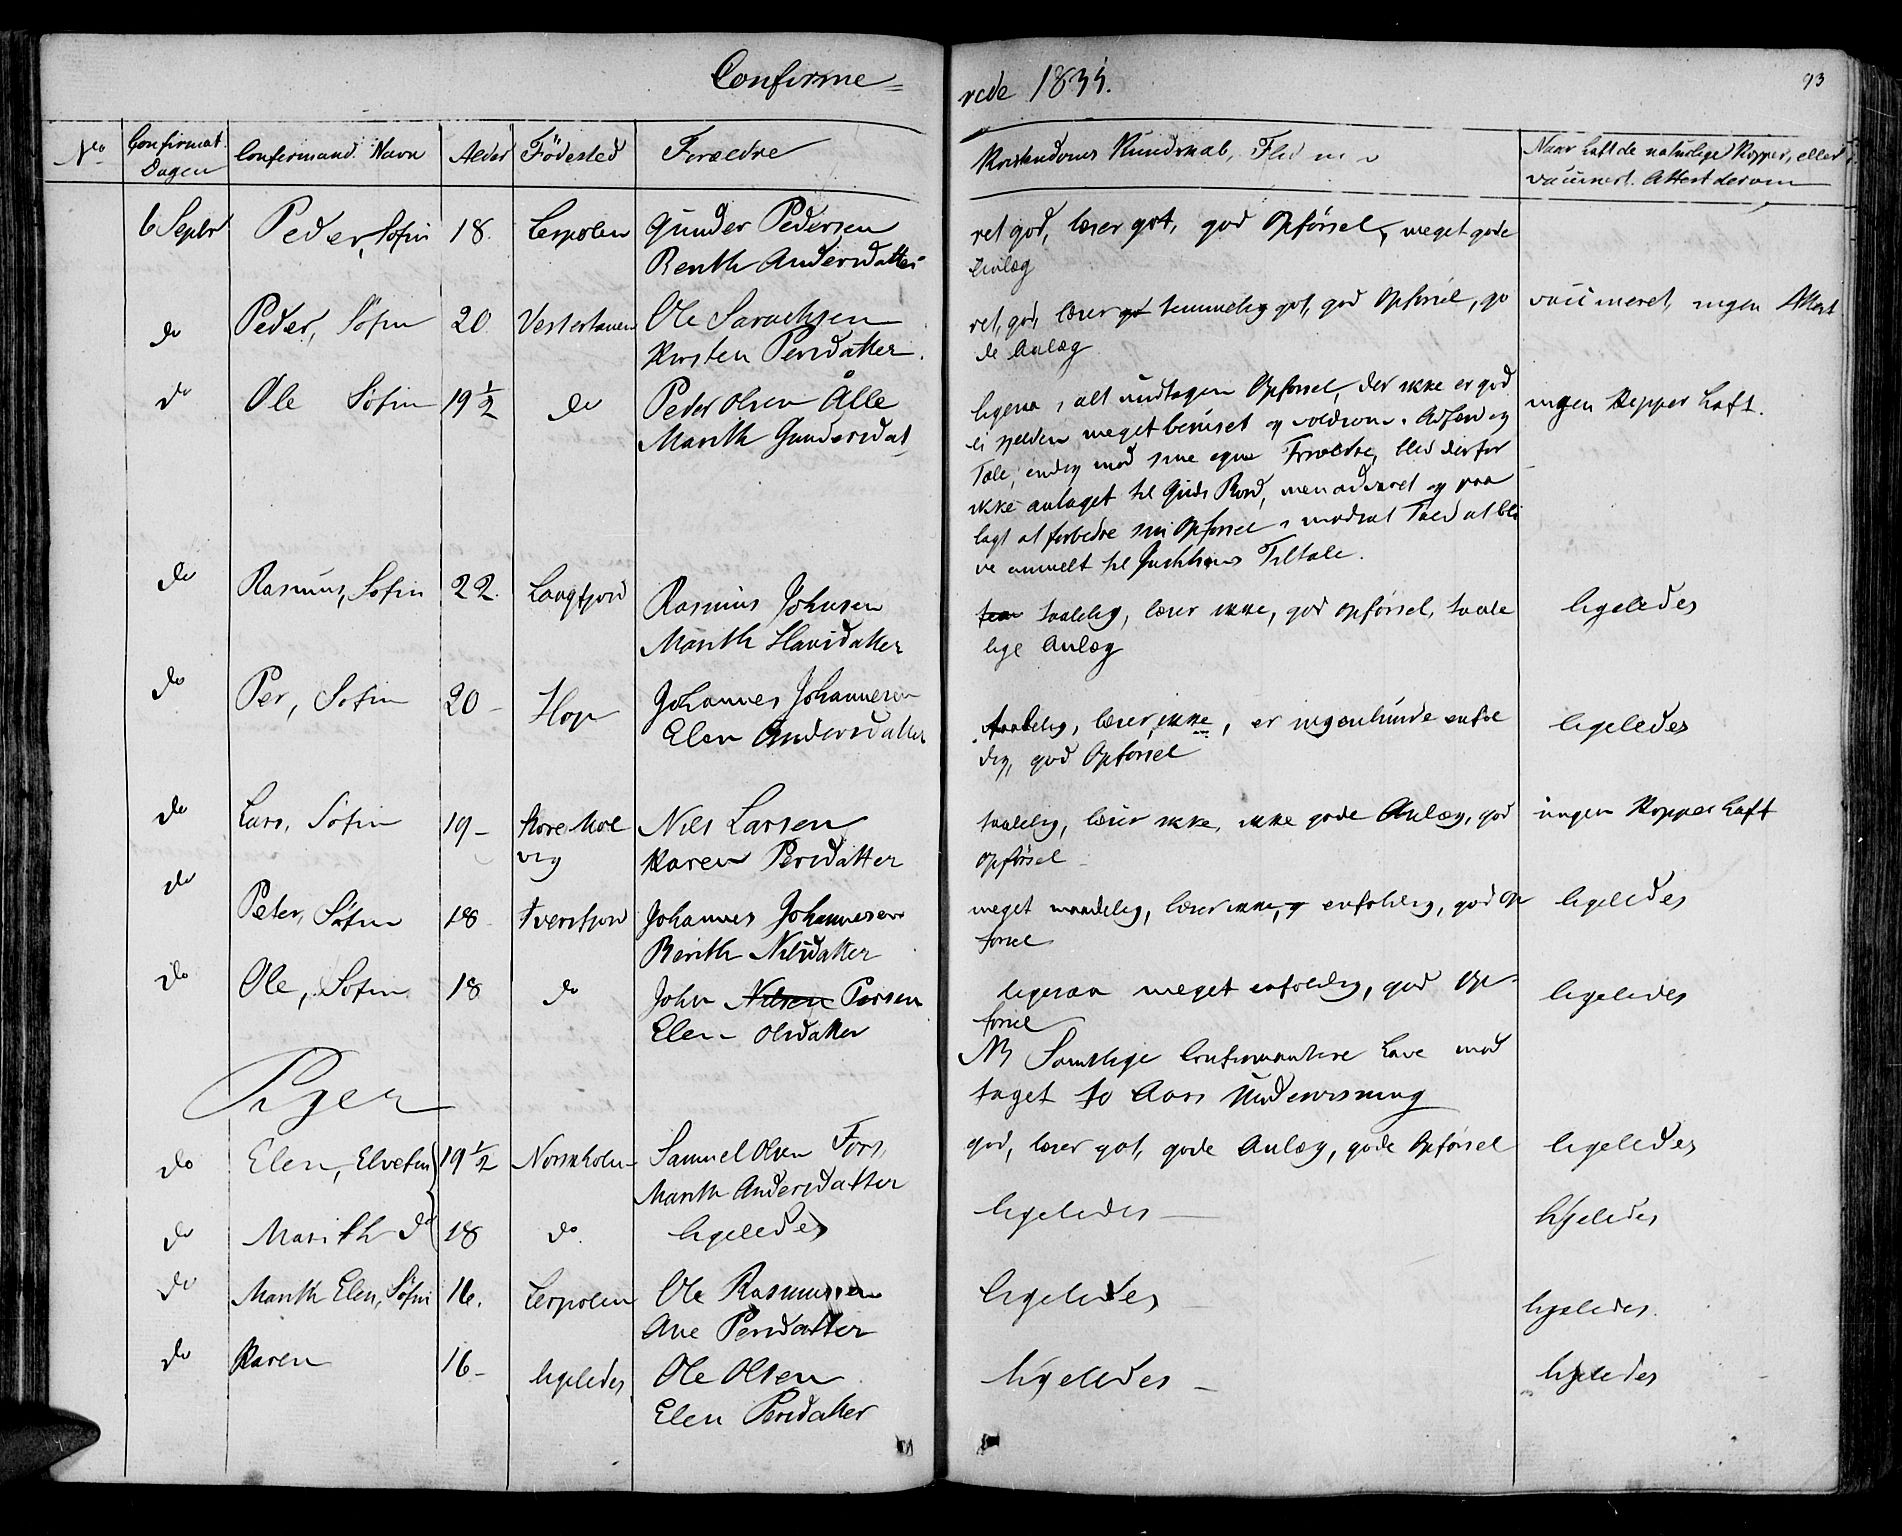 Confirme=
rede 1835.
93
No
Confirmat.
Dagen
Confirmand. Navn
Alder
Fødested
Forældre
Kristendoms Kundskab, Flid m v
Naar haft de naturlige Kopper, eller
vaccineret. Attest derom
6 Septbr Peder, Søfin 18. Leerpolen Gunder Pedersen
Berith Andersdatter
ret god, læser got, god Opførsel, meget gode
Anlæg
do Peder, Søfin 20 Vestertanen Ole
Kirsten Persdatter.
ret god, læser got temmelig got, god Opførsel, go
de Anlæg
vaccineret, ingen Attest
do Ole Søfin 19 1/2 do Peder Olsen Alle
Marith Gundersdat
ligesaa i alt undtagen Opførsel, der ikke er god
ei sielden meget beruset og voldsom i Adfærd og
Tale, endog mod sine egne Forældre, blev derfor
ikke antaget til Guds Bord, men advaret og paa
lagt at forbedre sin Opførsel i modsat Fald at bli
ve anmelt til Tiltale.
ingen Kopper haft.
do Rasmus, Søfin 22. Langfjord Rasmus Johnsen
Marith Hansdatter
taalelig, læser ikke, god Opførsel, taale
lige Anlæg
ligeledes
do Per, Søfin 20 - Hop Johannes Johannesen
Elen Andersdatter
taalelig, læser ikke, er ingenlunde enfol
dig, god Opførsel
ligeledes
do Lars, Søfin 19 - Store Mol
vig
Nils Larsen
Karen Persdatter
taalelig, læser ikke, ikke gode Anlæg, god
Opførsel
ingen Kopper haft
do Peter, Søfin 18 Tversfjord Johannes Johannesen
Berith Nilsdatter
meget maadelig, læser ikke, enfoldig, god Op
førsel
ligeledes
do Ole, Søfin 18 do John Nilsen Persen
Elen Olsdatter
ligesaa meget enfoldig, god Op-
førsel
ligeledes
NB Samtlige Confirmantere have mod
taget to Aars Underviisning
Piger
do Elen, Elvefin 19 1/2 Norskholm Samuel Olsen Fors,
Marith Andersdatter
god, læser got, gode Anlæg, gode Opførsel
ligeledes
do Marith do 18 do. ligeledes
ligeledes —
ligeledes
do Marith Elen, Søfin 16. Leerpolen Ole Rasmussen
Ane Persdatter
ligeledes
ligeledes.
do Karen 16 - ligeledes Ole Olsen
Elen Persdatter
ligeledes —
ligeledes